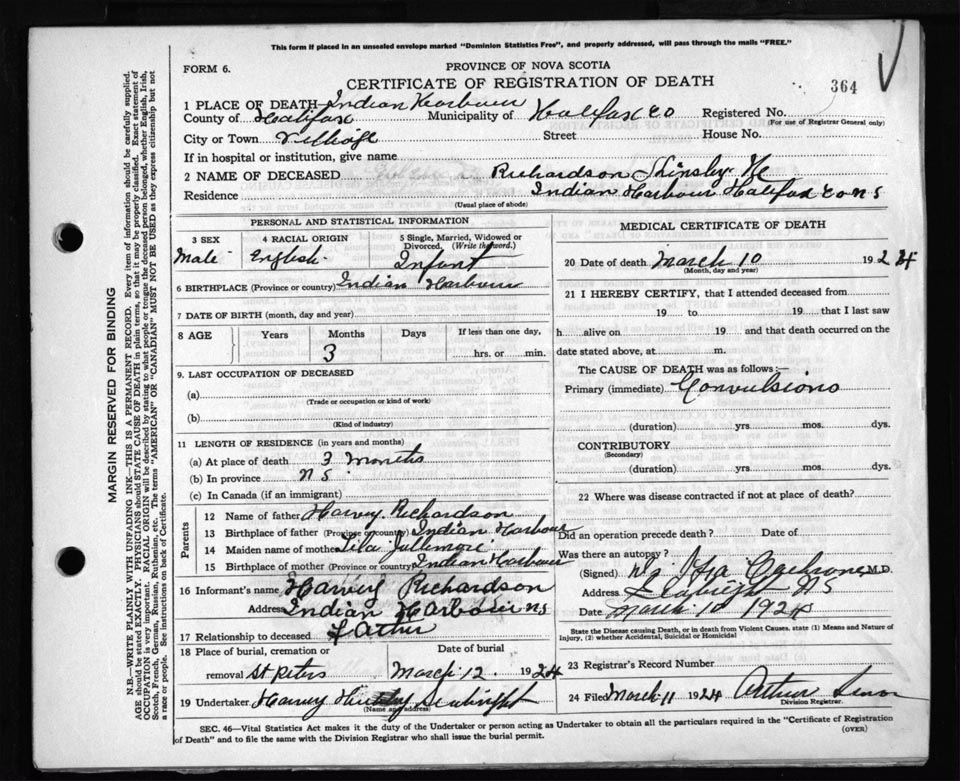 This form if placed in an unsealed envelope marked "Dominion Statistics Free", and properly addressed, will pass through the mails "FREE."
FORM 6.
PROVINCE OF NOVA SCOTIA
CERTIFICATE OF REGISTRATION OF DEATH
364
1 PLACE OF DEATH Indian Harbour
County of Halifax Municipality of Halifax Co Registered No.
(For use of Registrar General only)
City or Town Village Street House No.
If in hospital or institution, give name
2 NAME OF DECEASED Richardson
Residence Indian Harbour Halifax Co N S
(Usual place of abode)
PERSONAL AND STATISTICAL INFORMATION
3 SEX 4 RACIAL ORIGIN 5 Single, Married, Widowed or Divorced, (Write the word.)
Male English Infant
6 BIRTHPLACE (Province or country) Indian Harbour
7 DATE OF BIRTH (month, day and year)
8 AGE Years Months Days If less than one day,
3 hrs. or min.
9. LAST OCCUPATION OF DECEASED
(a)
(Trade or occupation or kind of work)
(b)
(Kind of industry)
11 LENGTH OF RESIDENCE (in years and months)
(a) At place of death 3 Months
(b) In province N S
(c) In Canada (if an immigrant)
Parents
12 Name of father Harvey Richardson
13 Birthplace of father (Province or country) Indian Harbour
14 Maiden name of mother
15 Birthplace of mother (Province or country) Indian Harbour
16 Informant's name Harvey Richardson
Address Indian Harbour N S
17 Relationship to deceased Father
18 Place of burial, cremation or removal Date of burial
St Peters March 12 1924
19 Undertaker Harvey Seabright
(Name and address)
MEDICAL CERTIFICATE OF DEATH
20 Date of death March 10 1924
(Month, day and year)
21 I HEREBY CERTIFY, that I attended deceased from
19 to 19 that I last saw
h alive on 19 and that death occurred on the
date stated above, at m.
The CAUSE OF DEATH was as follows:—
Primary (immediate) Convulsions
(duration) yrs. mos. dys.
CONTRIBUTORY
(Secondary)
(duration) yrs. mos. dys.
22 Where was disease contracted if not at place of death?
Did an operation precede death? Date of
Was there an autopsy?
(Signed) Cochrone M.D.
Address N S
Date March 10 1924
State the Disease causing Death, or in death from Violent Causes, state (1) Means and Nature of Injury, (2) whether Accidental, Suicidal or Homicidal
23 Registrar's Record Number
24 Filed March 11 1924 Arthur
Division Registrar.
SEC. 46—Vital Statistics Act makes it the duty of the Undertaker or person acting as Undertaker to obtain all the particulars required in the "Certificate of Registration
of Death" and to file the same with the Division Registrar who shall issue the burial permit.
(OVER)
MARGIN RESERVED FOR BINDING
N.B.—WRITE PLAINLY WITH UNFADING INK—THIS IS A PERMANENT RECORD. Every item of information should be carefully supplied.
AGE should be stated EXACTLY. PHYSICIANS should STATE CAUSE OF DEATH in plain terms, so that it may be properly classified. Exact statement of
OCCUPATION is very important. RACIAL ORIGIN will be described by stating to what people or tongue the deceased person belonged, whether English, Irish,
Scotch, French, German, Russian, Ruthenian, etc. The terms "AMERICAN" or "CANADIAN" MUST NOT BE USED as they express citizenship but not
a race or people. See instructions on back of Certificate.